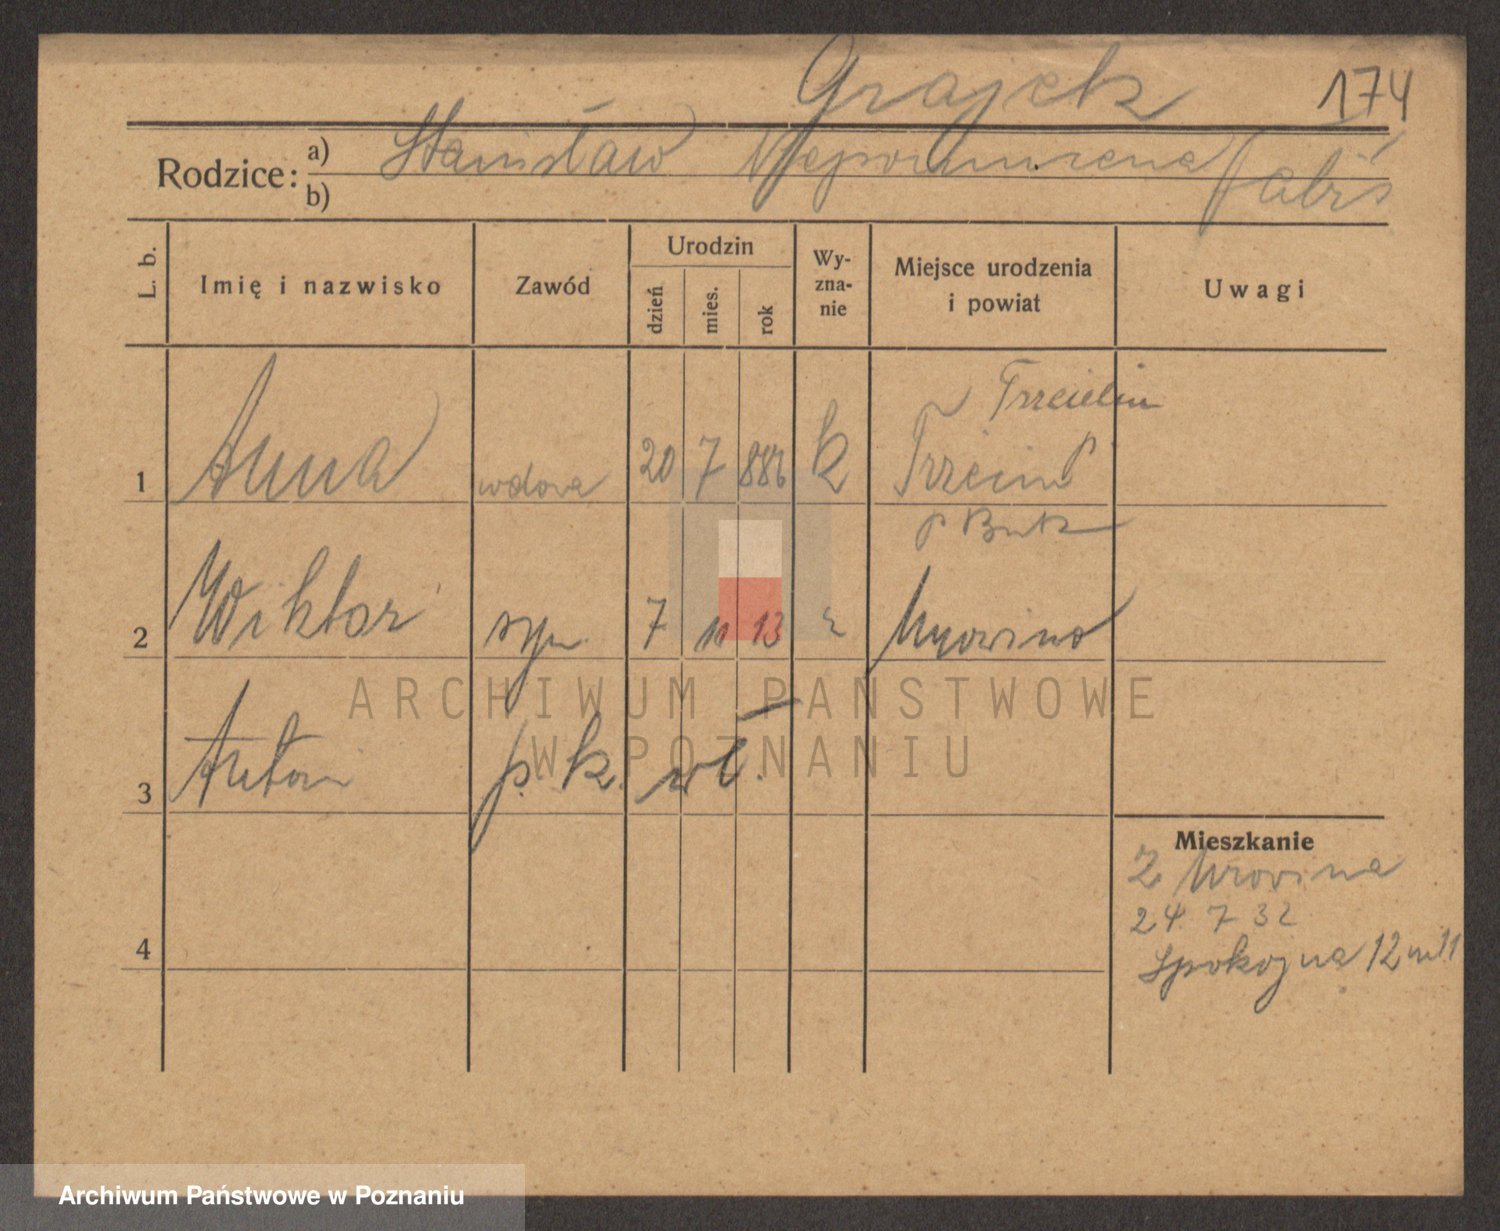 Grajek 174
Rodzice: a) Stanisław Nepomucena Jabłś
b)
L. b. Imię i nazwisko Zawód Urodzin Wy-zna-nie Miejsce urodzenia i powiat Uwagi
dzień mies. rok
Trzcielin
1 Anna wdowa 20 7 886 k Trzcin p
p Buk
2 Wiktor syn 7 11 13 Mrowino
ARCHIWUM PAŃSTWOWE
W POZNANIU
3 Antoni p. k. wł.
Mieszkanie
Z Mrovina
24. 7 32
4 Spokojna 12 m 11
Archiwum Państwowe w Poznaniu